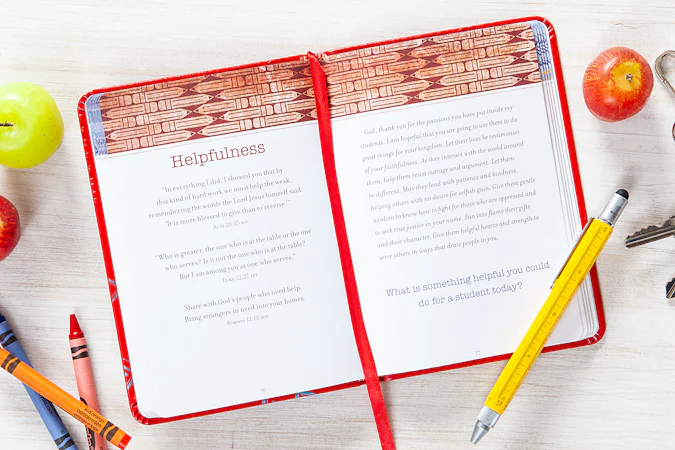 Helpfulness
"In everything I did, I showed you that by
this kind of hard work we must help the weak,
remembering the words the Lord Jesus himself said:
'It is more blessed to give than to receive.'"
Acts 20:35 NIV
"Who is greater, the one who is at the table or the one
who serves? Is it not the one who is at the table?
But I am among you as one who serves."
Luke 22:27 NIV
Share with God's people who need help.
Bring strangers in need into your homes.
Romans 12:13 NCV
God, thank you for the passions you have put inside my
students. I am hopeful that you are going to use them to do
great things for your kingdom. Let their lives be testimonies
of your faithfulness. As they interact with the world around
them, help them resist outrage and argument. Let them
be different. May they lead with patience and kindness,
helping others with no desire for selfish gain. Give them gentle
wisdom to know how to fight for those who are oppressed and
to seek true justice in your name. Fan into flame their gifts
and their character. Give them helpful hearts and strength to
serve others in ways that draw people to you.
What is something helpful you could
do for a student today?